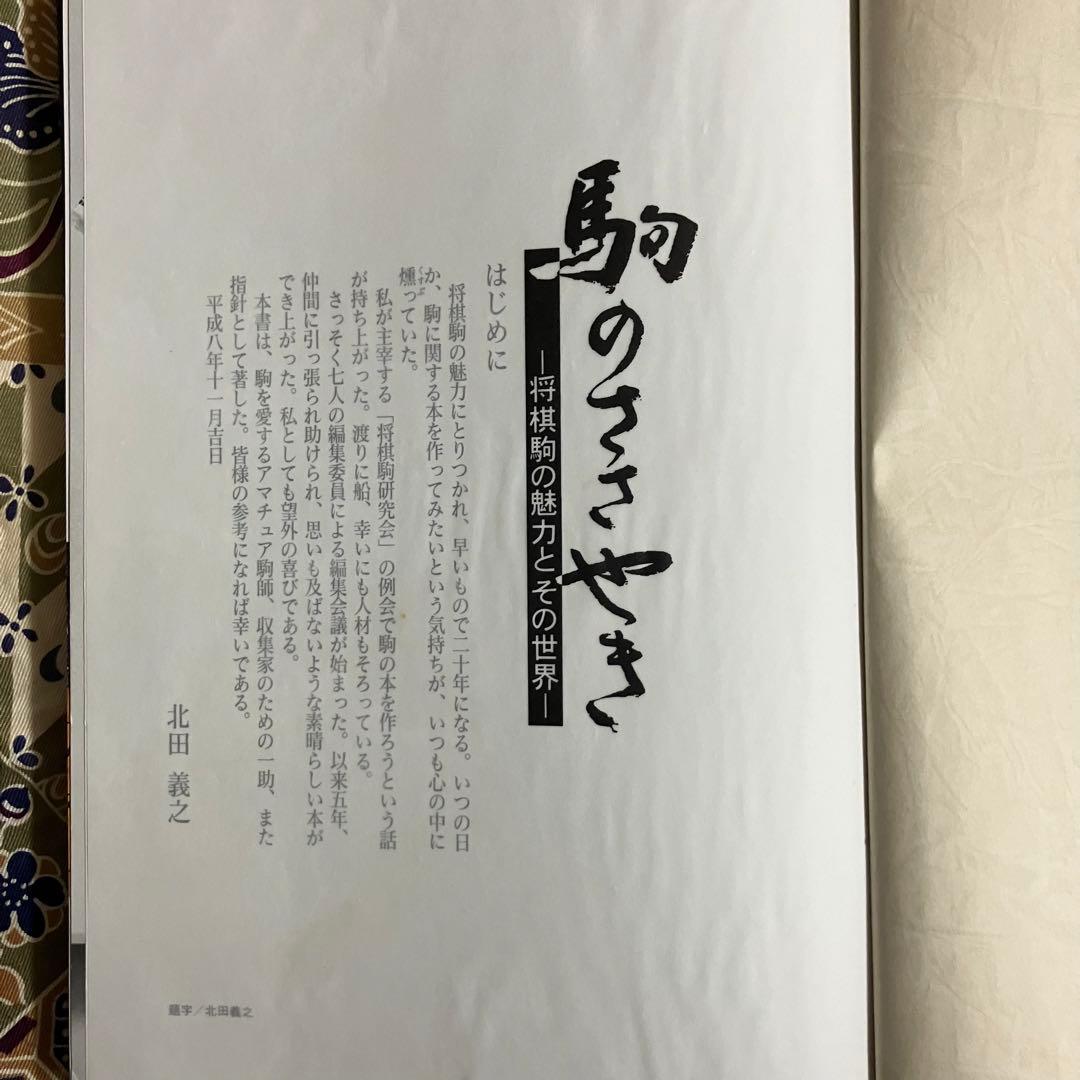 駒のささやき
―将棋駒の魅力とその世界―
はじめに
将棋駒の魅力にとりつかれ、早いもので二十年になる。いつの日
か、駒に関する本を作ってみたいという気持ちが、いつも心の中に
燻っていた。
くすぶ
私が主宰する「将棋駒研究会」の例会で駒の本を作ろうという話
が持ち上がった。渡りに船、幸いにも人材もそろっている。
さっそく七人の編集委員による編集会議が始まった。以来五年、
仲間に引っ張られ助けられ、思いも及ばないような素晴らしい本が
でき上がった。私としても望外の喜びである。
本書は、駒を愛するアマチュア駒師、収集家のための一助、また
指針として著した。皆様の参考になれば幸いである。
平成八年十一月吉日
北田 義之
題字／北田義之